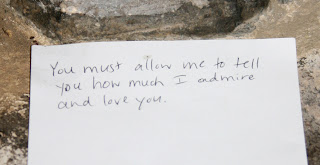 You must allow me to tell
you how much I admire
and love you.